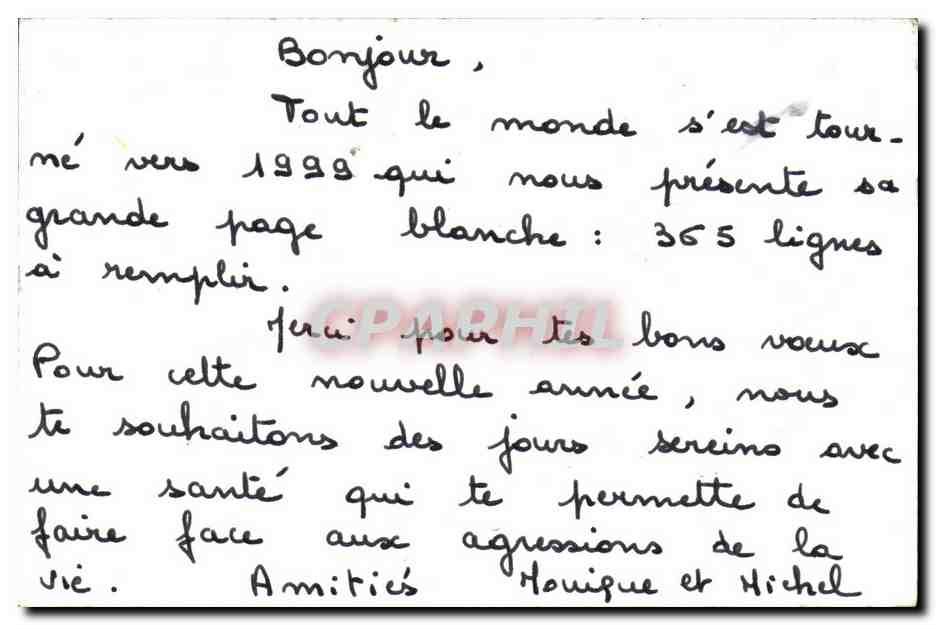 Bonjour,
Tout le monde s'est tour-
né vers 1999 qui nous présente sa
grande page blanche : 365 lignes
à remplir.
CPAPHIL
Merci pour tes bons vœux
Pour cette nouvelle année, nous
te souhaitons des jours sereins avec
une santé qui te permette de
faire face aux agressions de la
vie. Amitiés Monique et Michel